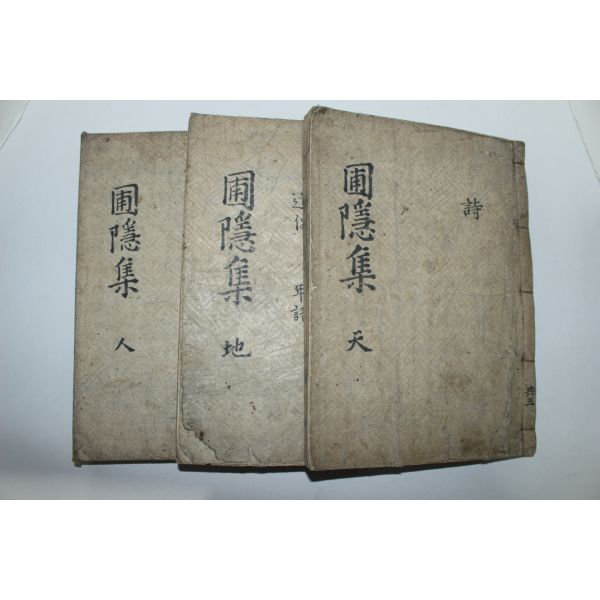 圃隱集 天
詩
共三
圃隱集 地
年譜
圃隱集 人